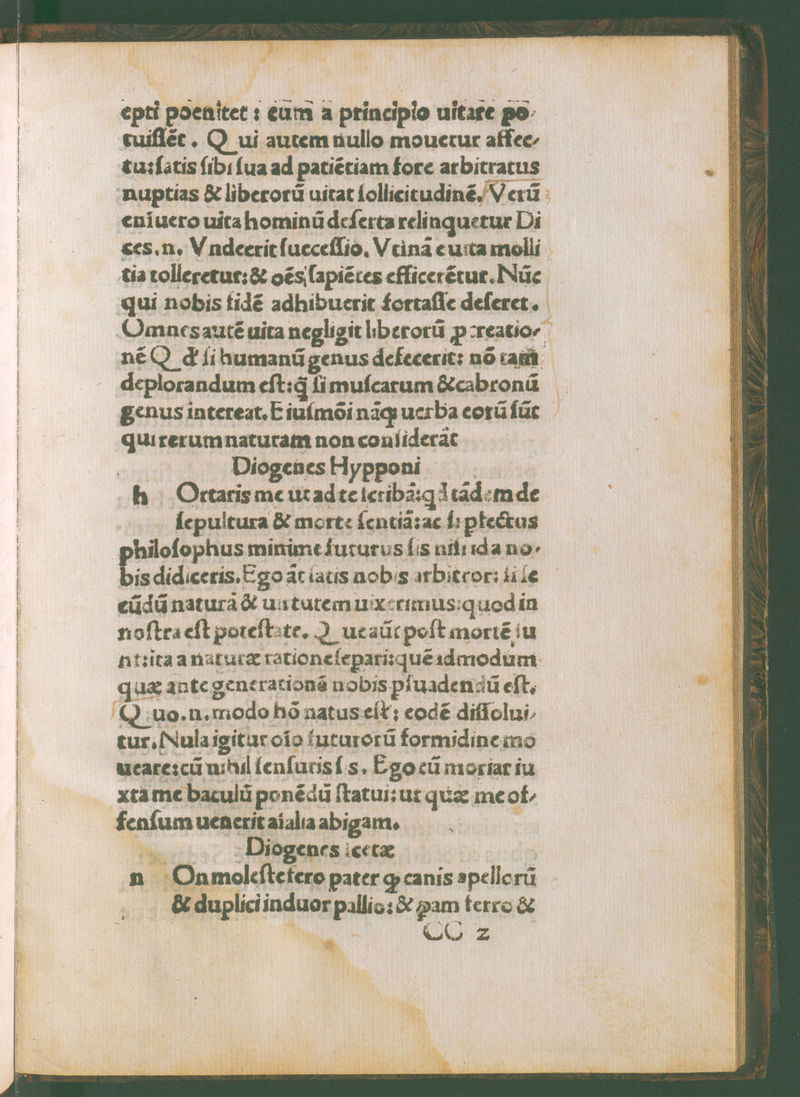 epti poenitet : cum a principio uitare po-
tuissēt . Q ui autem nullo mouetur affec-
tu:satis sibi sua ad patiētiam fore arbitratus
nuptias & liberorū uitat sollicitudinē. Verū
eniuero uita hominū deserta relinquetur Di
ces.n. Vndeerit successio. Vtinā e uita molli
tia tolleretur:& oēs sapiētes efficerētur. Nūc
qui nobis fidē adhibuerit fortasse deseret .
Omnes autē uita negligit liberorū ꝓcreatio-
nē Q đ si humanū genus defecerit: nō tam
deplorandum est:q̄ si muscarum & cabronū
genus intereat. Eiusmōi nāqꝫ uerba eorū sūt
qui rerum naturam non considerāt
Diogenes Hypponi
h Ortaris me ut ad te scribā:q d tādem de
sepultura & morte sentiā:ac si plectus
philosophus minime futurus sis nisi ida no-
bis didiceris. Ego āt satis nobis arbitror: si se
cūdū naturā & uirtutem uixerimus:quod in
nostra est potestate. Q ueaūt post mortē su
nt:ita a naturæ ratione separi:quēadmodum
quæ ante generationē nobis psuadendū est.
Q uo.n.modo hō natus est ; eodē dissolui-
tur. Nula igitur oīo futurorū formidine mo
ueare:cū nihil sensuris s s. Ego cū moriar iu
xta me baculū ponēdū statui:ut quæ me of-
fensum uenerit aialia abigam.
Diogenes icetæ
n On moleste fero pater ꝙ canis apellorū
& duplici induor pallio:& ꝑam ferro &
CC 2